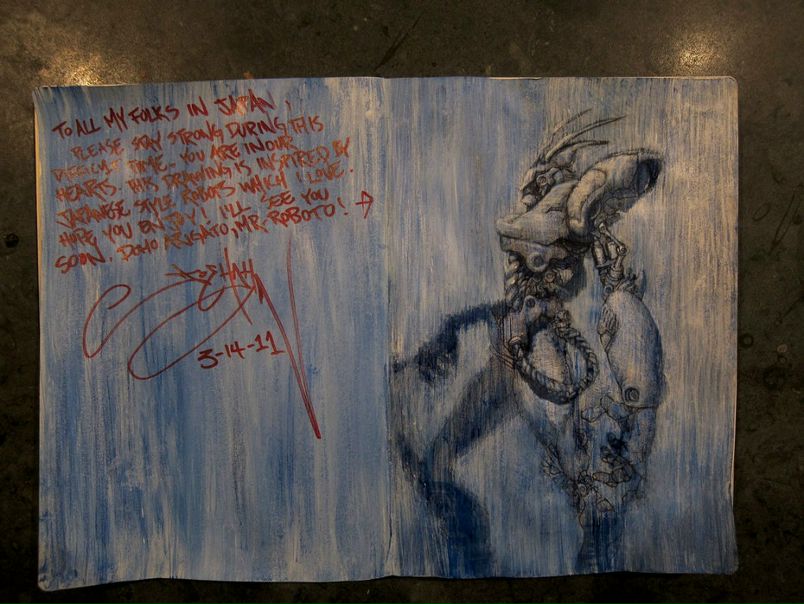 TO ALL MY FOLKS IN JAPAN,
PLEASE STAY STRONG DURING THIS
DIFFICULT TIME. YOU ARE IN OUR
HEARTS. THIS DRAWING IS INSPIRED BY
JAPANESE STYLE ROBOTS WHICH I LOVE.
HOPE YOU ENJOY! I'LL SEE YOU
SOON. DOMO ARIGATO, MR. ROBOTO! →
JOE HAHN
3-14-11